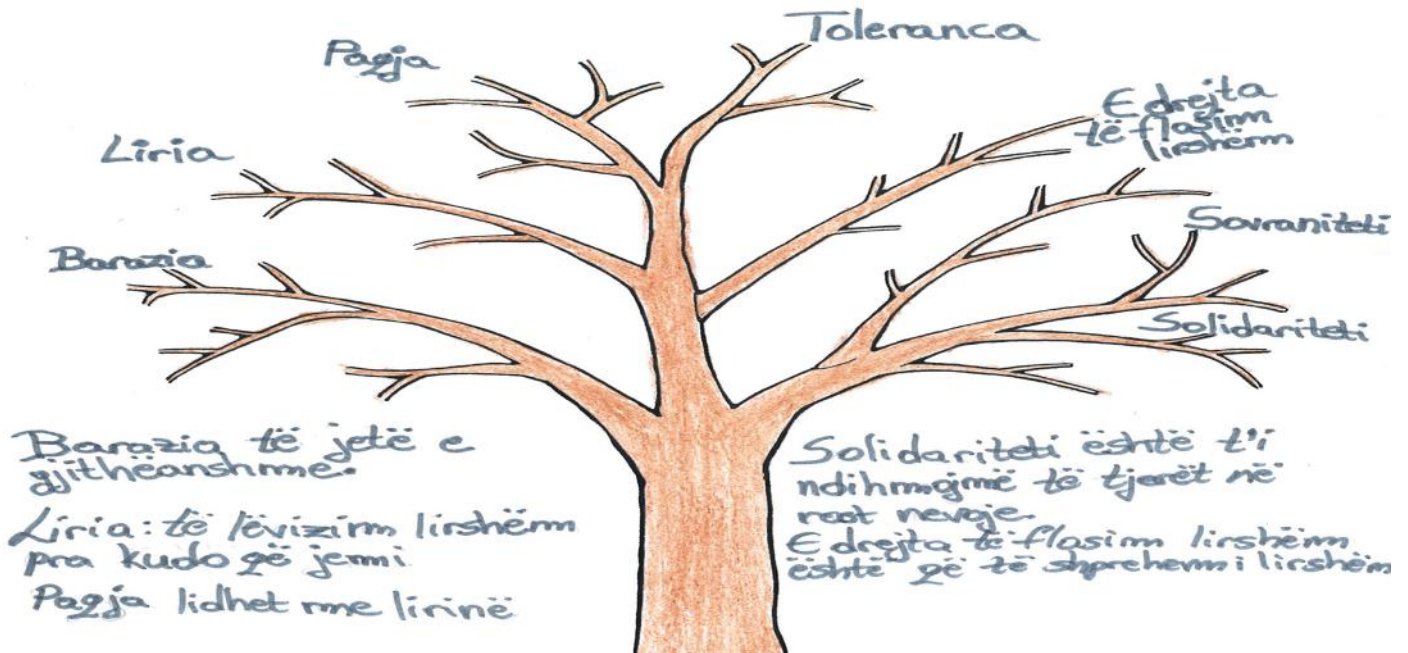 Toleranca
Paqja
E drejta
të flasim
lirshëm
Liria
Sovraniteti
Barazia
Solidariteti
Barazia të jetë e
gjithëanshme.
Liria: të lëvizim lirshëm
pra kudo që jemi
Paqja lidhet me lirinë
Solidariteti është t'i
ndihmojmë të tjerët në
rast nevoje.
E drejta të flasim lirshëm
është që të shprehemi lirshëm